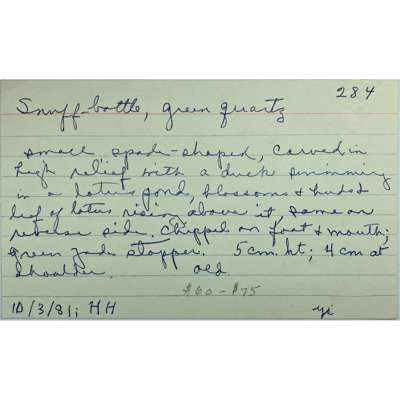 284
Snuff-bottle, green quartz
small, spade-shaped, carved in
high relief with a duck swimming
in a lotus pond, blossoms & buds &
leaf of lotus rising above it, same on
reverse side. Chipped on foot & mouth;
green jade stopper. 5 cm. ht; 4 cm at
shoulder. old.
$60 - $75
10/3/81; HH yi